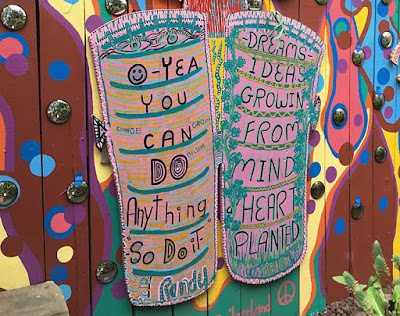 O-YEA
YOU
CAN
DO
Anything
So Do iT
Randy
DREAMS
IDEAS
GROWIN
FROM
MIND
HEART
PLANTED